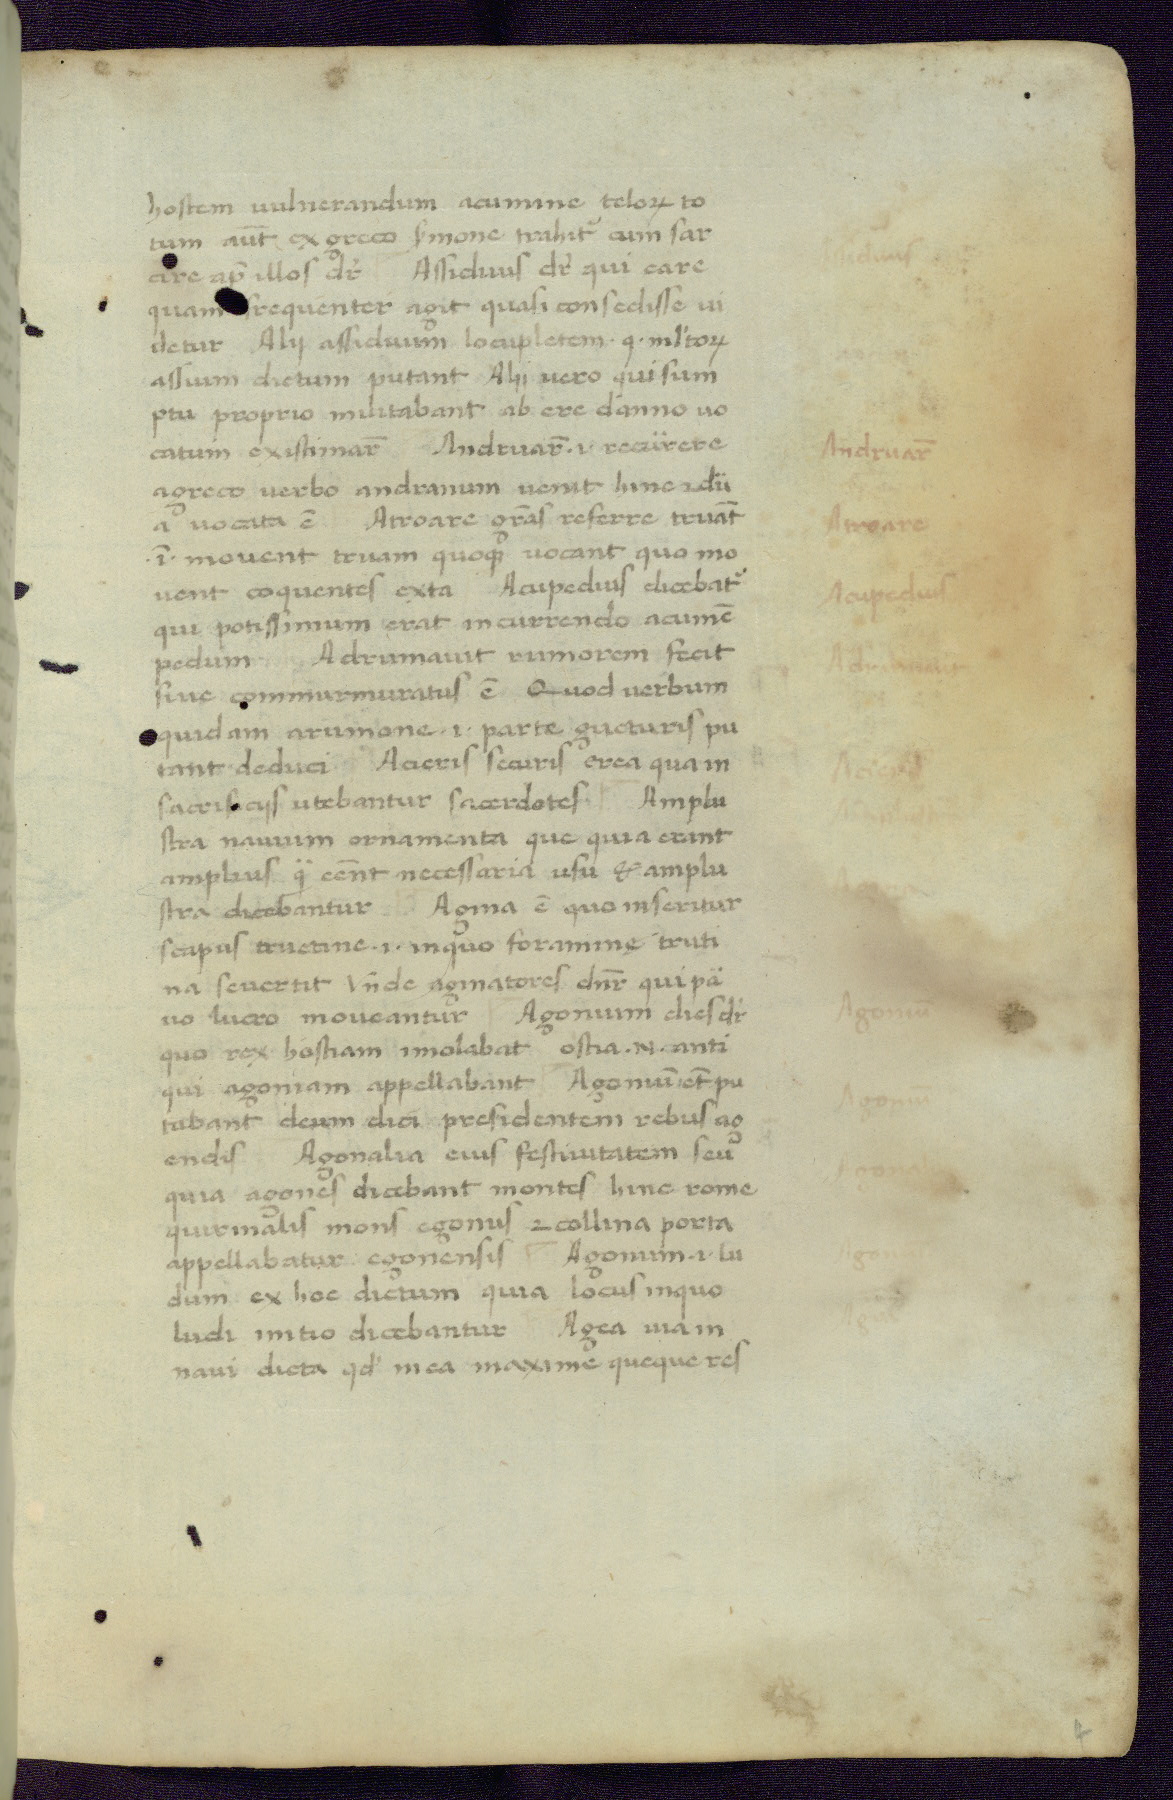 hostem uulnerandum acumine teloꝝ to
tum aut̄ ex greco ẜmone trahit᷑ cum sar
cire ap̄ illos dr̄ Assiduus dr̄ qui eare
quam frequenter agit quasi consedisse ui
detur Alij assiduum locupletem · q · ml'toꝝ
assium dictum putant Alij uero qui sum
ptu proprio militabant ab ere dãno uo
catum existimar̄ Andruar̄ · i · recũrere
a greco uerbo andranum uenit hinc ⁊ dũ
a uocata ē Atroare gr̄as referre truãt
· ī · mouent truam quoqꝫ uocant quo mo
uent coquentes exta Acupedius dicebat᷑
qui potissimum erat in currendo acumē
pedum Adrumauit rumorem fecit
siue commurmuratus ē Quod uerbum
quidam a rumone · i · parte gucturis pu
tant deduci Acieris securis erea qua in
sacrificijs utebantur sacerdotes Amplu
stra nauium ornamenta que quia erant
amplius q̃ eēnt necessaria usu & amplu
stra dicebantur Agina ē quo inseritur
scapus trutine · i · in quo foramine truti
na se uertit Vñde aginatores dñr qui pã
uo lucro moueantur Agonium dies dr̄
quo rex hostiam imolabat ostia · N · anti
qui agoniam appellabant Agoniũ et̄ pu
tabant deum dici presidentem rebus ag
endis Agonalia eius festiuitatem seu
quia agones dicebant montes hinc rome
quirinalis mons egonus ⁊ collina porta
appellabatur egonensis Agonium · i · lu
dum ex hoc dictum quia locus in quo
ludi initio dicebantur Agea uia in
naui dicta qd' in ea maxime queque res
Assiduus
Andruar̄
Atroare
Acupedius
Adrumauit
Acieris
Agina
Agoniũ
Agoniũ
Agonalia
4